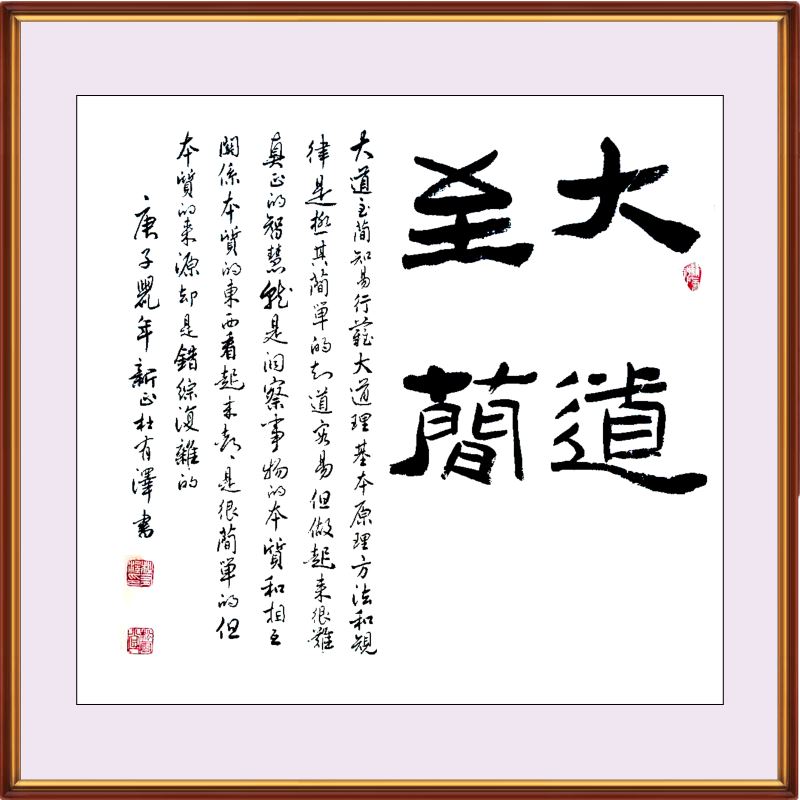 大道
至簡
大道至簡知易行難大道理基本原理方法和規
律是極其簡單的知道容易但做起来很難
真正的智慧就是洞察事物的本質和相互
関係本質的東西看起来都是很簡單的但
本質的来源却是錯綜復雜的
庚子鼠年新正杜有澤書